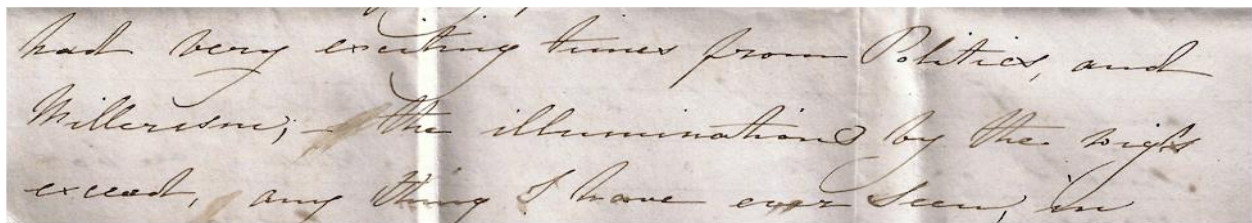 had very exciting times from Politics, and
Millerism; - the illuminations by the wigs
exceed, any thing I have ever seen, in